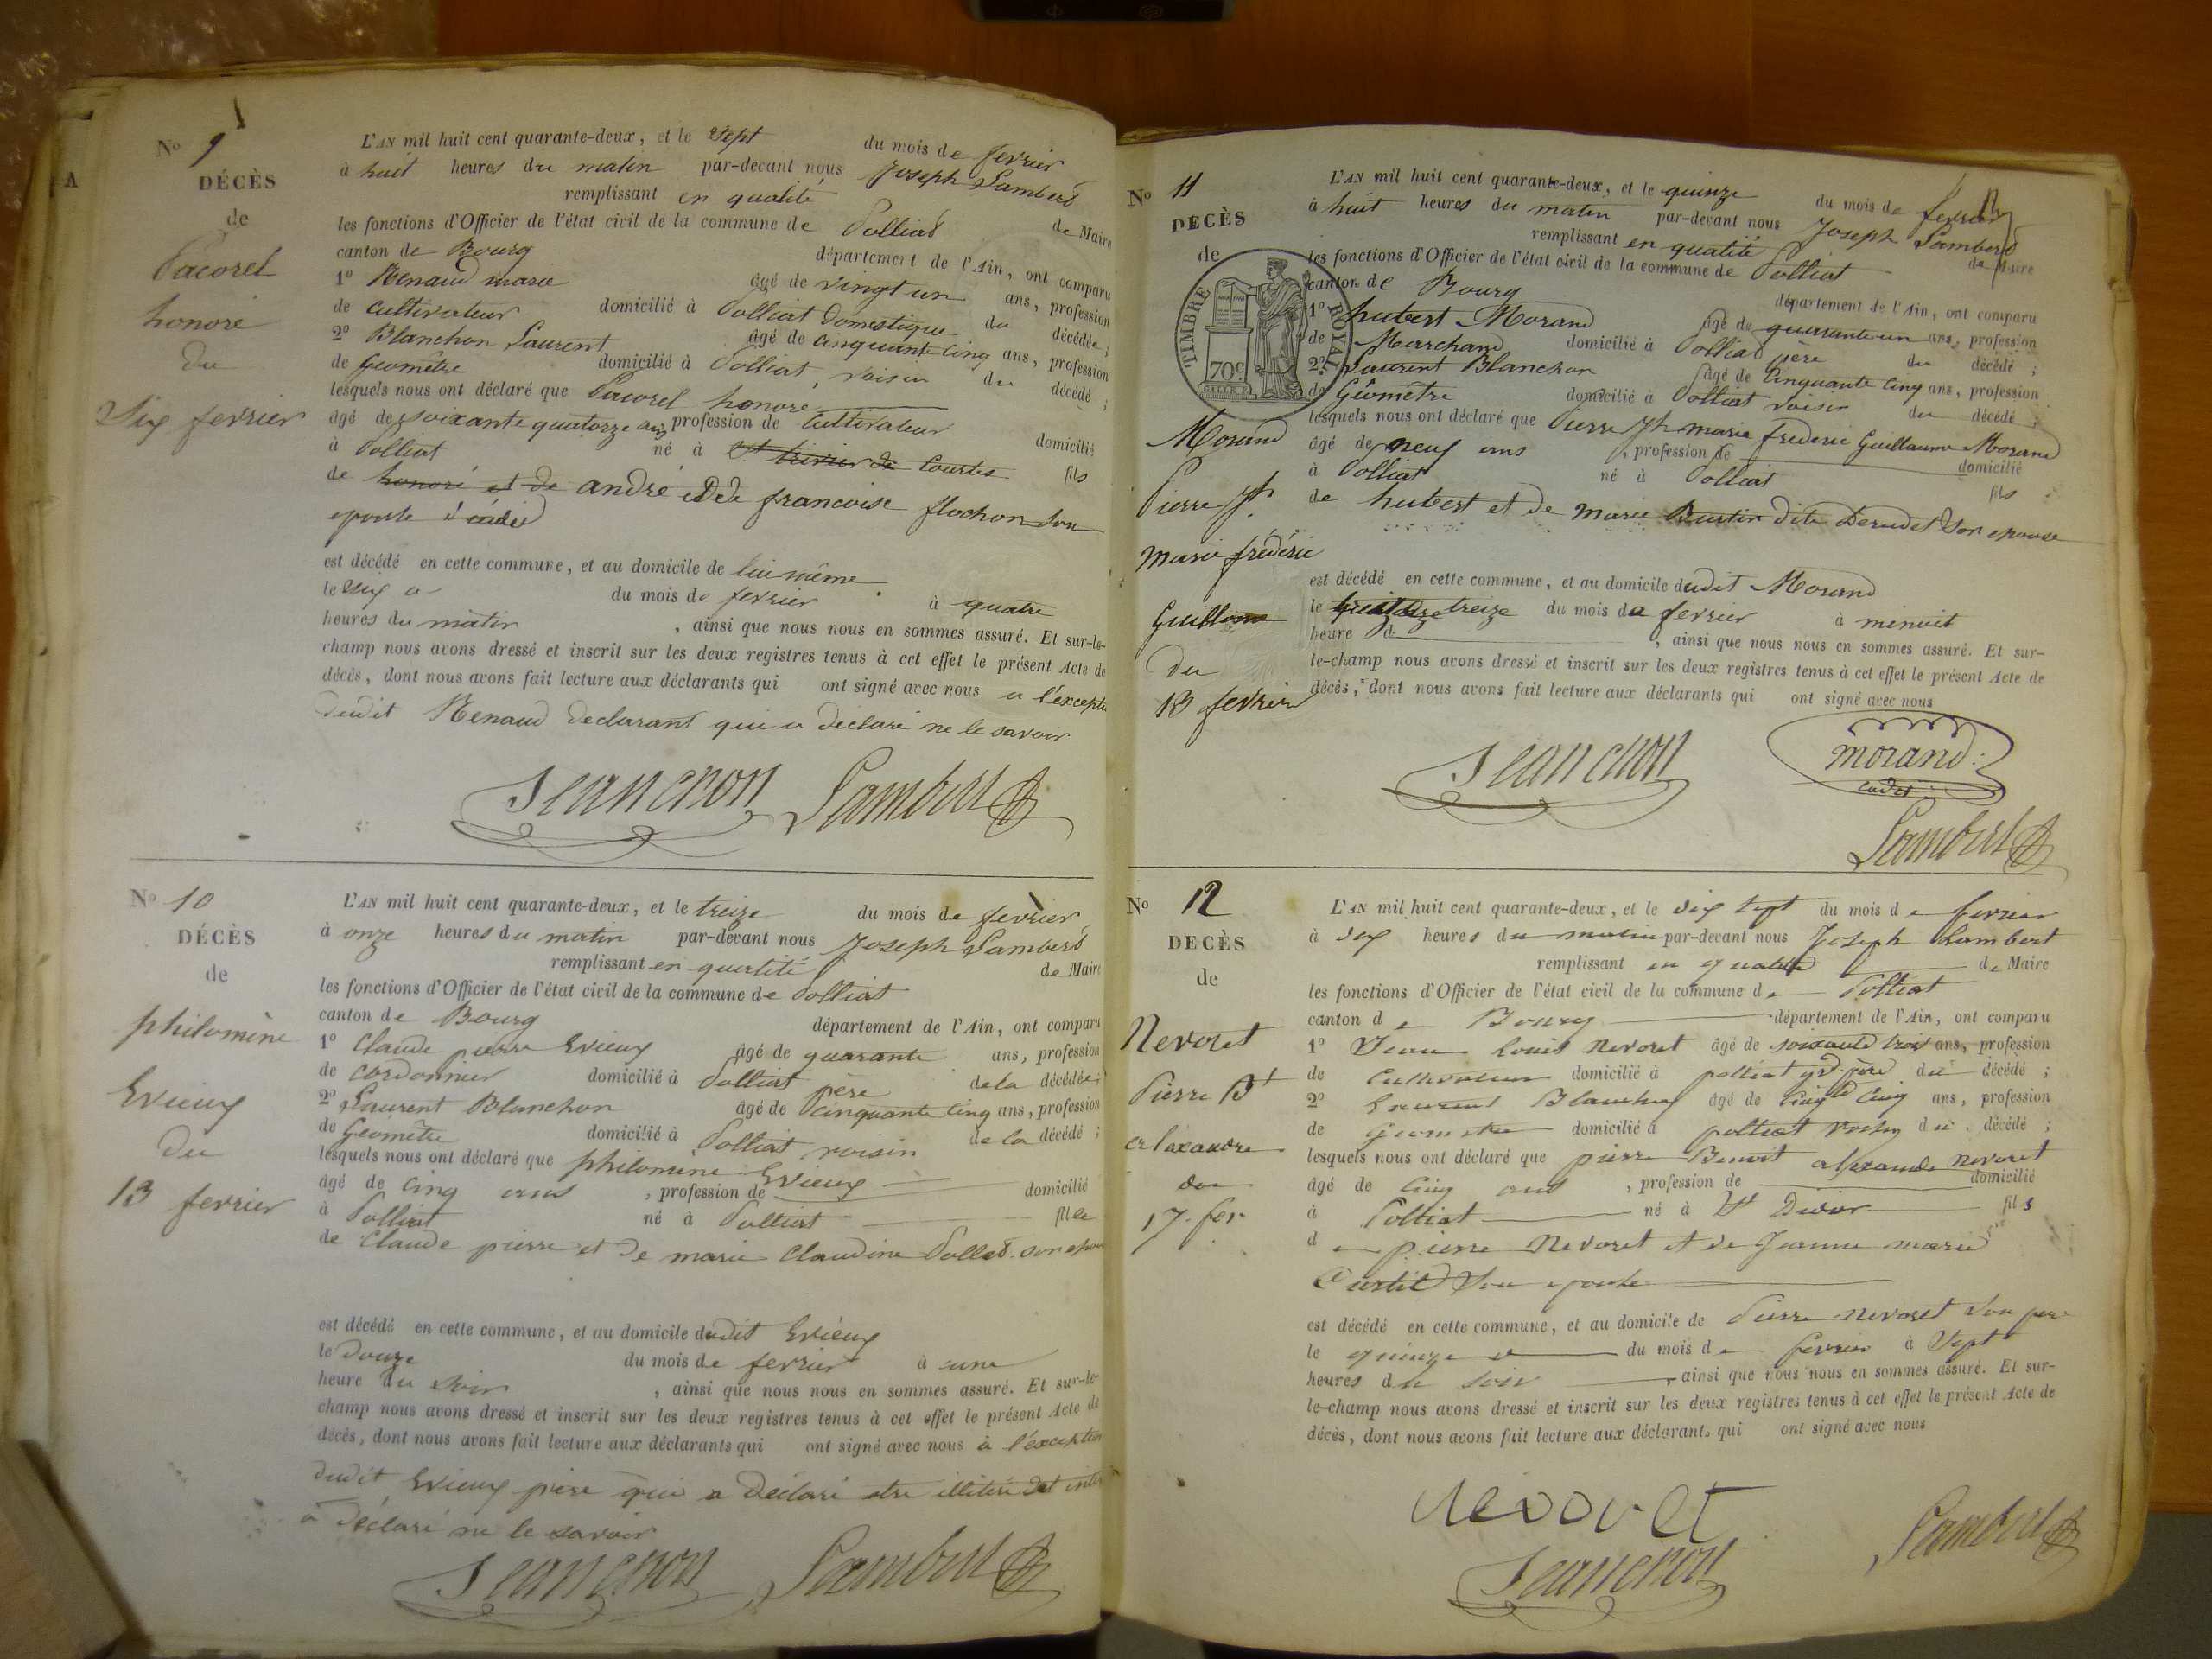 A
No 9
DÉCÈS
de
Pacorel
honoré
du
Six fevrier
L'AN mil huit cent quarante-deux, et le Sept du mois de fevrier
à huit heures du matin par-devant nous Joseph Lambert
remplissant en qualité de Maire
les fonctions d'Officier de l'état civil de la commune de Polliat
canton de Bourg département de l'Ain, ont comparu
1o Renaud marie âgé de vingt un ans, profession
de cultivateur domicilié à Polliat domestique du décédé ;
2o Blanchon Laurent âgé de cinquante cinq ans, profession
de Géomètre domicilié à Polliat, voisin du décédé ;
lesquels nous ont déclaré que Pacorel honoré
âgé de soixante quatorze ans profession de Cultivateur domicilié
à Polliat né à St trivier de Courtes fils
de honoré et de andré et de francoise flochon son
epouse
est décédé en cette commune, et au domicile de lui même
le Six du mois de fevrier à quatre
heures du matin, ainsi que nous nous en sommes assuré. Et sur-le-
champ nous avons dressé et inscrit sur les deux registres tenus à cet effet le présent Acte de
décès, dont nous avons fait lecture aux déclarants qui ont signé avec nous a l'excepti
dudit Renaud declarant qui a déclaré ne le savoir
Lambert
No 10
DÉCÈS
de
philomène
Evieux
du
13 fevrier
L'AN mil huit cent quarante-deux, et le treize du mois de fevrier
à onze heures du matin par-devant nous Joseph Lambert
remplissant en qualité de Maire
les fonctions d'Officier de l'état civil de la commune de Polliat
canton de Bourg département de l'Ain, ont comparu
1o Claude pierre Evieux âgé de quarante ans, profession
de cordonnier domicilié à Polliat père de la décédée ;
2o Laurent Blanchon âgé de cinquante cinq ans, profession
de Géomètre domicilié à Polliat voisin de la décédé ;
lesquels nous ont déclaré que philomène Evieux
âgé de cinq ans, profession de domicilié
à Polliat né à Polliat fille
de Claude pierre et de marie Claudine Pollet son epou
est décédé en cette commune, et au domicile dudit Evieux
le douze du mois de fevrier à une
heure du soir, ainsi que nous nous en sommes assuré. Et sur-le-
champ nous avons dressé et inscrit sur les deux registres tenus à cet effet le présent Acte de
décès, dont nous avons fait lecture aux déclarants qui ont signé avec nous à l'exception
dudit Evieux père qui a déclaré être illitéré
a déclaré ne le savoir
Lambert
No 11
DÉCÈS
de
TIMBRE ROYAL
70c
Morand
Pierre Jh
marie frédéric
Guillaume
du
13 fevrier
L'AN mil huit cent quarante-deux, et le quinze du mois de fevrier
à huit heures du matin par-devant nous Joseph Lambert
remplissant en qualité de Maire
les fonctions d'Officier de l'état civil de la commune de Polliat
canton de Bourg département de l'Ain, ont comparu
1o hubert Morand âgé de quarante un ans, profession
de Marchand domicilié à Polliat père du décédé ;
2o Laurent Blanchon âgé de Cinquante cinq ans, profession
de Géomètre domicilié à Polliat voisin du décédé ;
lesquels nous ont déclaré que Pierre Jh marie frederic Guillaume Morand
âgé de neuf ans, profession de domicilié
à Polliat né à Polliat fils
de hubert et de marie Burtin dite Derudet son epouse
est décédé en cette commune, et au domicile dudit Morand
le treize du mois de fevrier à minuit
heure d, ainsi que nous nous en sommes assuré. Et sur-
le-champ nous avons dressé et inscrit sur les deux registres tenus à cet effet le présent Acte de
décès, dont nous avons fait lecture aux déclarants qui ont signé avec nous
morand
cadet
Lambert
No 12
DÉCÈS
de
Nevoret
Pierre Bt
alexandre
du
17 fev
L'AN mil huit cent quarante-deux, et le dix sept du mois de fevrier
à dix heures du matin par-devant nous Joseph Lambert
remplissant en qualité de Maire
les fonctions d'Officier de l'état civil de la commune de Polliat
canton de Bourg département de l'Ain, ont comparu
1o Jean Louis Nevoret âgé de soixante trois ans, profession
de Cultivateur domicilié à polliat gd père du décédé ;
2o Laurent Blanchon âgé de cinqte cinq ans, profession
de Géomètre domicilié à polliat voisin du décédé ;
lesquels nous ont déclaré que pierre Benoit alexandre Nevoret
âgé de cinq ans, profession de domicilié
à Polliat né à St Didier fils
de pierre Nevoret et de Jeanne marie
Curtil son epouse
est décédé en cette commune, et au domicile de Pierre Nevoret son pere
le quinze du mois de fevrier à Sept
heures du soir, ainsi que nous nous en sommes assuré. Et sur-
le-champ nous avons dressé et inscrit sur les deux registres tenus à cet effet le présent Acte de
décès, dont nous avons fait lecture aux déclarants qui ont signé avec nous
nevoret
Lambert